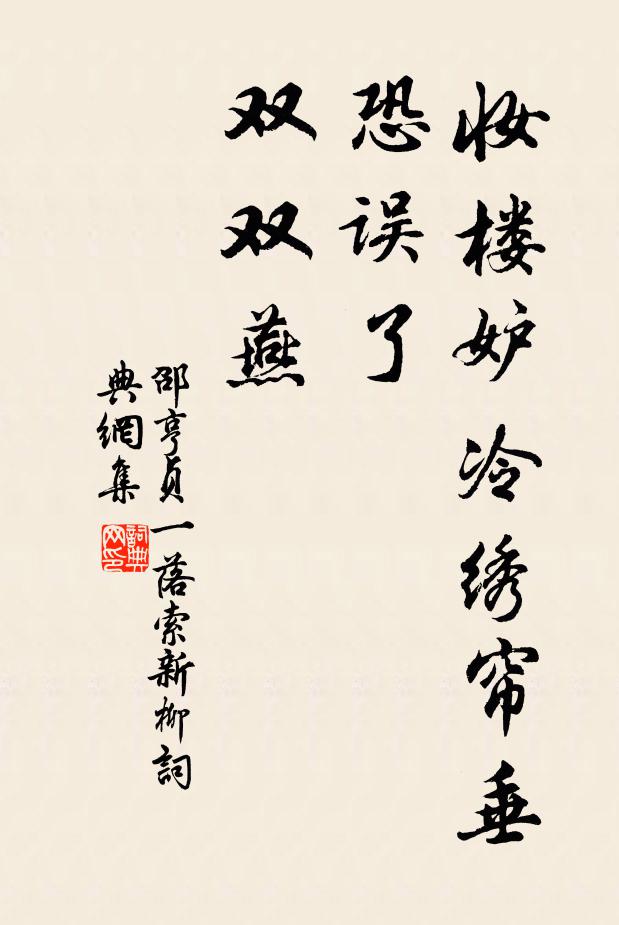 妆楼妒冷绣帘垂
恐误了
双双燕
邵亨贞一落索新柳詞
典網集
詞典
网印